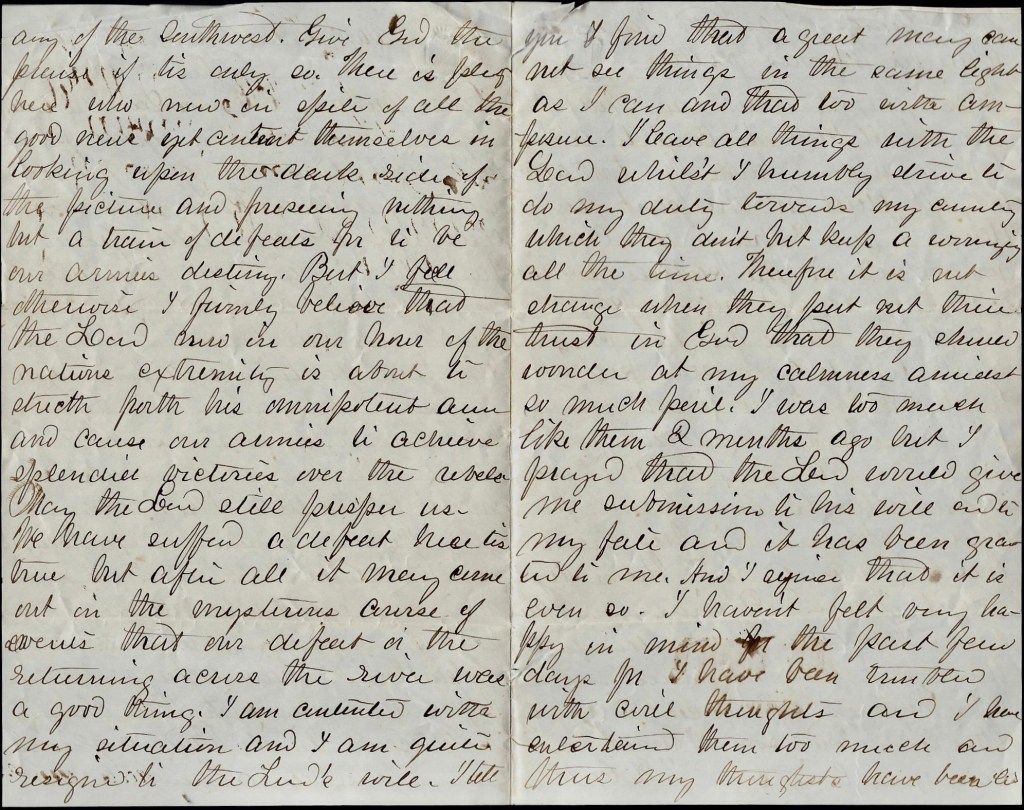 any of the Southwest. Give God the
praise if tis only so. There is plenty
here who now in spite of all the
good news yet content themselves in
looking upon the dark side of
the picture and preseeing nothing
but a train of defeats for to be
our armies destiny. But I feel
otherwise I firmly believe that
the Lord now in our hour of the
nations extremity is about to
stretch forth his omnipotent arm
and cause our armies to achieve
splendid victories over the rebels
May the Lord still prosper us.
We have suffered a defeat here tis
true but after all it may come
out in the mysterious course of
events that our defeat or the
returning across the river was
a good thing. I am contented with
my situation and I am quite
resigned to the Lord's will. I tell
you I find that a great many can
not see things in the same light
as I can and that too with com-
posure. I leave all things with the
Lord whilst I humbly strive to
do my duty towards my country
which they don't but keep a worrying
all the time. Therefore it is not
strange when they put not their
trust in God that they should
wonder at my calmness amidst
so much peril. I was too much
like them 2 months ago but I
prayed that the Lord would give
me submission to his will and to
my fate and it has been gran
ted to me. And I rejoice that it is
even so. I havent felt very ha-
ppy in mind for the past few
days for I have been troubled
with evil thoughts and I have
entertained them too much and
thus my thoughts have been